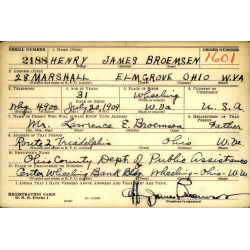 SERIAL NUMBER 1. NAME (Print) ORDER NUMBER
2188 HENRY JAMES BROEMSEN 1601
2. ADDRESS (Print)
28 MARSHALL ELMGROVE OHIO W.VA
3. TELEPHONE 4. AGE IN YEARS 5. PLACE OF BIRTH 6. COUNTRY OF CITIZENSHIP
31 Wheeling
Whg. 4900 July 20, 1909 W.Va U.S.A.
7. NAME OF PERSON WHO WILL ALWAYS KNOW YOUR ADDRESS 8. RELATIONSHIP OF THAT PERSON
Mr. Lawrence E. Broemsen Father
9. ADDRESS OF THAT PERSON
Route 2 Triadelphia Ohio W.Va
10. EMPLOYER'S NAME
Ohio County Dept. of Public Assistance
11. PLACE OF EMPLOYMENT OR BUSINESS
Center Wheeling Bank Bldg. Wheeling-Ohio-W.Va
I AFFIRM THAT I HAVE VERIFIED ABOVE ANSWERS AND THAT THEY ARE TRUE.
REGISTRATION CARD
D. S. S. Form 1 H. James Broemsen